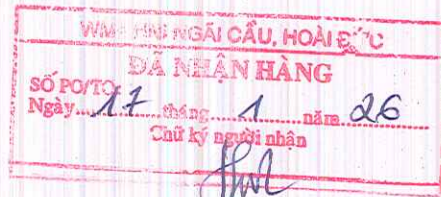 WM+ HNI NGÃI CẦU, HOÀI ĐỨC
ĐÃ NHẬN HÀNG
SỐ PO/TO
Ngày....17....tháng....1....năm....26
Chữ ký người nhận